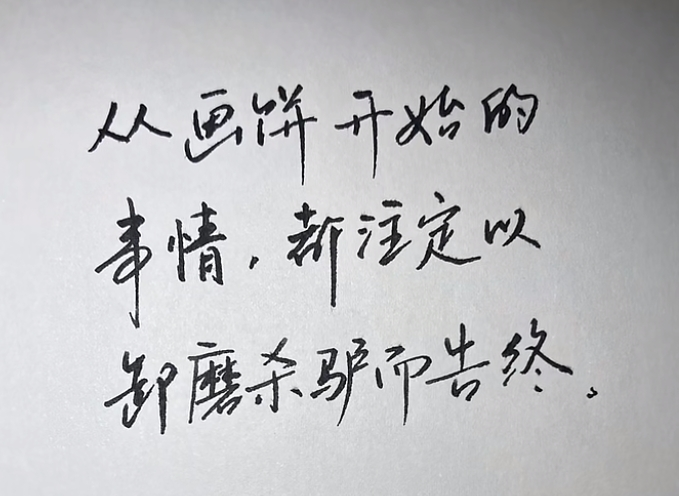 从画饼开始的
事情，都注定以
卸磨杀驴而告终。